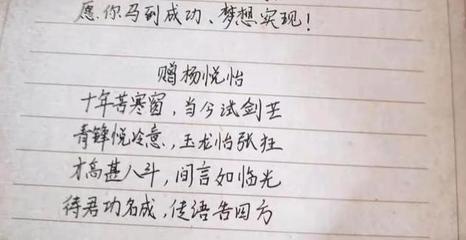 愿你马到成功、梦想实现！
赠杨悦怡
十年苦寒窗，当今试剑芒
青锋悦冷意，玉龙怡张狂
才高甚八斗，间言如临光
待君功名成，佳语告四方